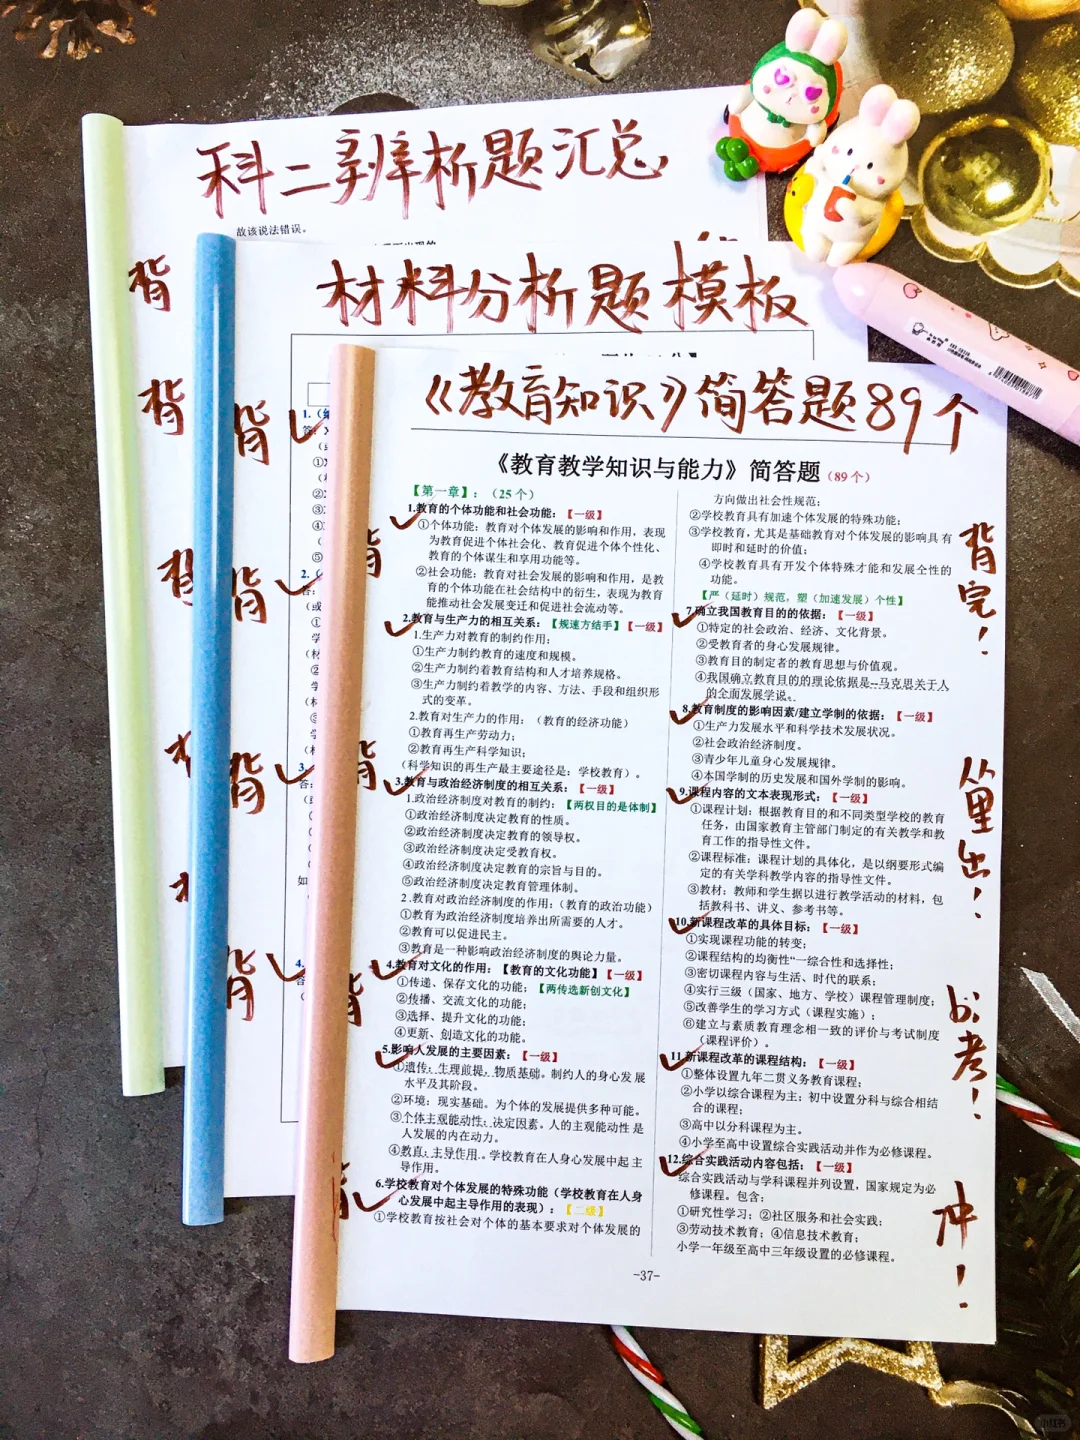 科二辨析题汇总
故该说法错误。
背
背
背
材料分析题模板
背
背
背
背
1.
①
②
③
④
⑤
2.
3.
4.
《教育知识》简答题89个
《教育教学知识与能力》简答题（89个）
【第一章】：（25个）
1.教育的个体功能和社会功能：【一级】
①个体功能：教育对个体发展的影响和作用，表现
为教育促进个体社会化、教育促进个体个性化、
教育的个体谋生和享用功能等。
②社会功能：教育对社会发展的影响和作用，是教
育的个体功能在社会结构中的衍生，表现为教育
能推动社会发展变迁和促进社会流动等。
2.教育与生产力的相互关系：【规速方结手】【一级】
1.生产力对教育的制约作用；
①生产力制约教育的速度和规模。
②生产力制约着教育结构和人才培养规格。
③生产力制约着教学的内容、方法、手段和组织形
式的变革。
2.教育对生产力的作用：（教育的经济功能）
①教育再生产劳动力；
②教育再生产科学知识；
（科学知识的再生产最主要途径是：学校教育）。
3.教育与政治经济制度的相互关系：【一级】
1.政治经济制度对教育的制约：【两权目的是体制】
①政治经济制度决定教育的性质。
②政治经济制度决定教育的领导权。
③政治经济制度决定受教育权。
④政治经济制度决定教育的宗旨与目的。
⑤政治经济制度决定教育管理体制。
2.教育对政治经济制度的作用：（教育的政治功能）
①教育为政治经济制度培养出所需要的人才。
②教育可以促进民主。
③教育是一种影响政治经济制度的舆论力量。
4.教育对文化的作用：【教育的文化功能】【一级】
①传递、保存文化的功能；【两传选新创文化】
②传播、交流文化的功能；
③选择、提升文化的功能；
④更新、创造文化的功能。
5.影响人发展的主要因素：【一级】
①遗传：生理前提，物质基础。制约人的身心发展
水平及其阶段。
②环境：现实基础。为个体的发展提供多种可能。
③个体主观能动性：决定因素。人的主观能动性是
人发展的内在动力。
④教育：主导作用。学校教育在人身心发展中起主
导作用。
6.学校教育对个体发展的特殊功能（学校教育在人身
心发展中起主导作用的表现）：【二级】
①学校教育按社会对个体的基本要求对个体发展的
方向做出社会性规范；
②学校教育具有加速个体发展的特殊功能；
③学校教育，尤其是基础教育对个体发展的影响具有
即时和延时的价值；
④学校教育具有开发个体特殊才能和发展个性的
功能。
【严（延时）规范，塑（加速发展）个性】
7.确立我国教育目的的依据：【一级】
①特定的社会政治、经济、文化背景。
②受教育者的身心发展规律。
③教育目的制定者的教育思想与价值观。
④我国确立教育目的的理论依据是--马克思关于人
的全面发展学说。
8.教育制度的影响因素/建立学制的依据：【一级】
①生产力发展水平和科学技术发展状况。
②社会政治经济制度。
③青少年儿童身心发展规律。
④本国学制的历史发展和国外学制的影响。
9.课程内容的文本表现形式：【一级】
①课程计划：根据教育目的和不同类型学校的教育
任务，由国家教育主管部门制定的有关教学和教
育工作的指导性文件。
②课程标准：课程计划的具体化，是以纲要形式编
定的有关学科教学内容的指导性文件。
③教材：教师和学生据以进行教学活动的材料，包
括教科书、讲义、参考书等。
10.新课程改革的具体目标：【一级】
①实现课程功能的转变；
②课程结构的均衡性"一综合性和选择性；
③密切课程内容与生活、时代的联系；
④实行三级（国家、地方、学校）课程管理制度；
⑤改善学生的学习方式（课程实施）；
⑥建立与素质教育理念相一致的评价与考试制度
（课程评价）。
11.新课程改革的课程结构：【一级】
①整体设置九年二贯义务教育课程；
②小学以综合课程为主；初中设置分科与综合相结
合的课程；
③高中以分科课程为主。
④小学至高中设置综合实践活动并作为必修课程。
12.综合实践活动内容包括：【一级】
综合实践活动与学科课程并列设置，国家规定为必
修课程。包含；
①研究性学习；②社区服务和社会实践；
③劳动技术教育；④信息技术教育；
小学一年级至高中三年级设置的必修课程。
-37-
背完！
必考！
冲！
小红书